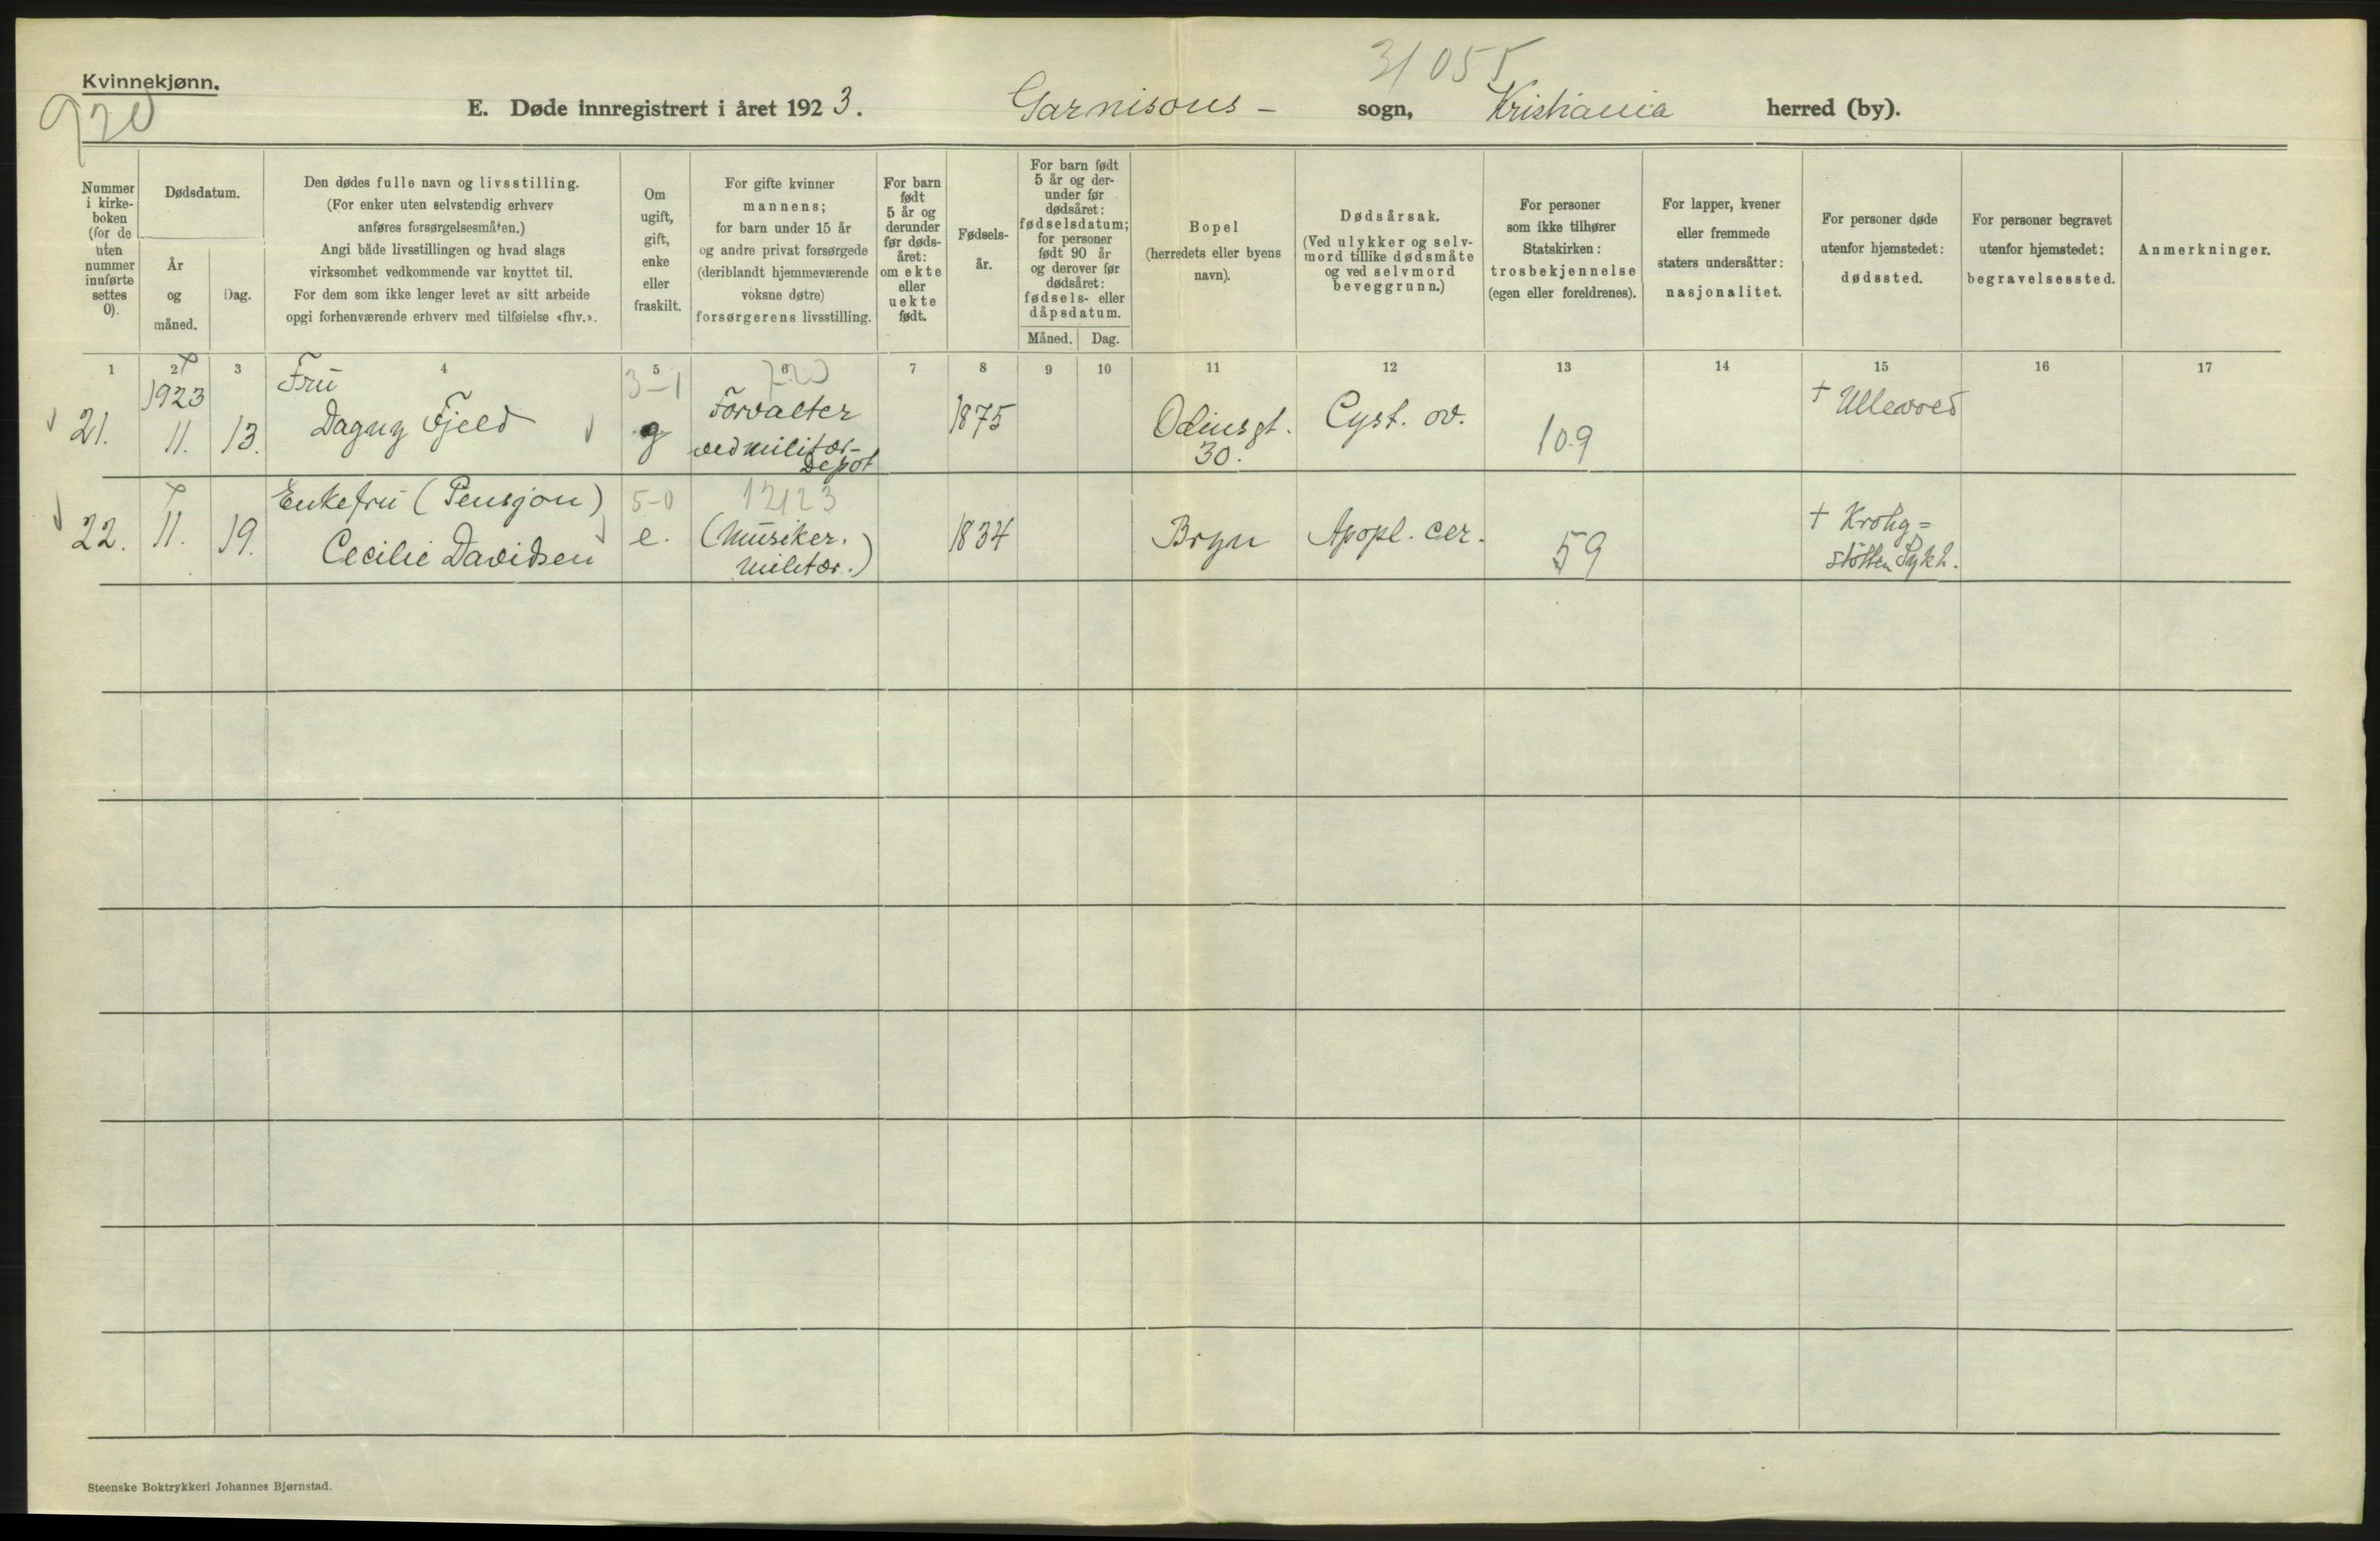 Kvinnekjønn.
920
31055
E. Døde innregistrert i året 1923. Garnisons- sogn, Kristiania herred (by).
Nummer
i kirke-
boken
(for de
uten
nummer
innførte
settes
0).
Dødsdatum.
År
og
måned.
Dag.
Den dødes fulle navn og livsstilling.
(For enker uten selvstendig erhverv
anføres forsørgelsesmåten.)
Angi både livsstillingen og hvad slags
virksomhet vedkommende var knyttet til.
For dem som ikke lenger levet av sitt arbeide
opgi forhenværende erhverv med tilføielse «fhv.».
Om
ugift,
gift,
enke
eller
fraskilt.
For gifte kvinner
mannens;
for barn under 15 år
og andre privat forsørgede
(deriblandt hjemmeværende
voksne døtre)
forsørgerens livsstilling.
For barn
født
5 år og
derunder
før døds-
året:
om ekte
eller
uekte
født.
Fødsels-
år.
For barn født
5 år og der-
under før
dødsåret:
fødselsdatum;
for personer
født 90 år
og derover før
dødsåret:
fødsels- eller
dåpsdatum.
Måned. Dag.
Bopel
(herredets eller byens
navn).
Dødsårsak.
(Ved ulykker og selv-
mord tillike dødsmåte
og ved selvmord
beveggrunn.)
For personer
som ikke tilhører
Statskirken:
trosbekjennelse
(egen eller foreldrenes).
For lapper, kvener
eller fremmede
staters undersåtter:
nasjonalitet.
For personer døde
utenfor hjemstedet:
dødssted.
For personer begravet
utenfor hjemstedet:
begravelsessted.
Anmerkninger.
1 2 3 4 5 6 7 8 9 10 11 12 13 14 15 16 17
21.
1923
11.
13.
Fru
Dagny Fjeld
3-1
g
Forvalter
ved militær-
Depot
1875
Odinsgt.
30.
Cyst. ov.
109
+ Ullevold
22.
11.
19.
Enkefru (Pensjon)
Cecilie Davidsen
5-0
e.
12123
(Musiker.
Militær.)
1834
Bryn
Apopl. cer.
59
+ Krohg=
støtten Sykh.
Steenske Boktrykkeri Johannes Bjørnstad.